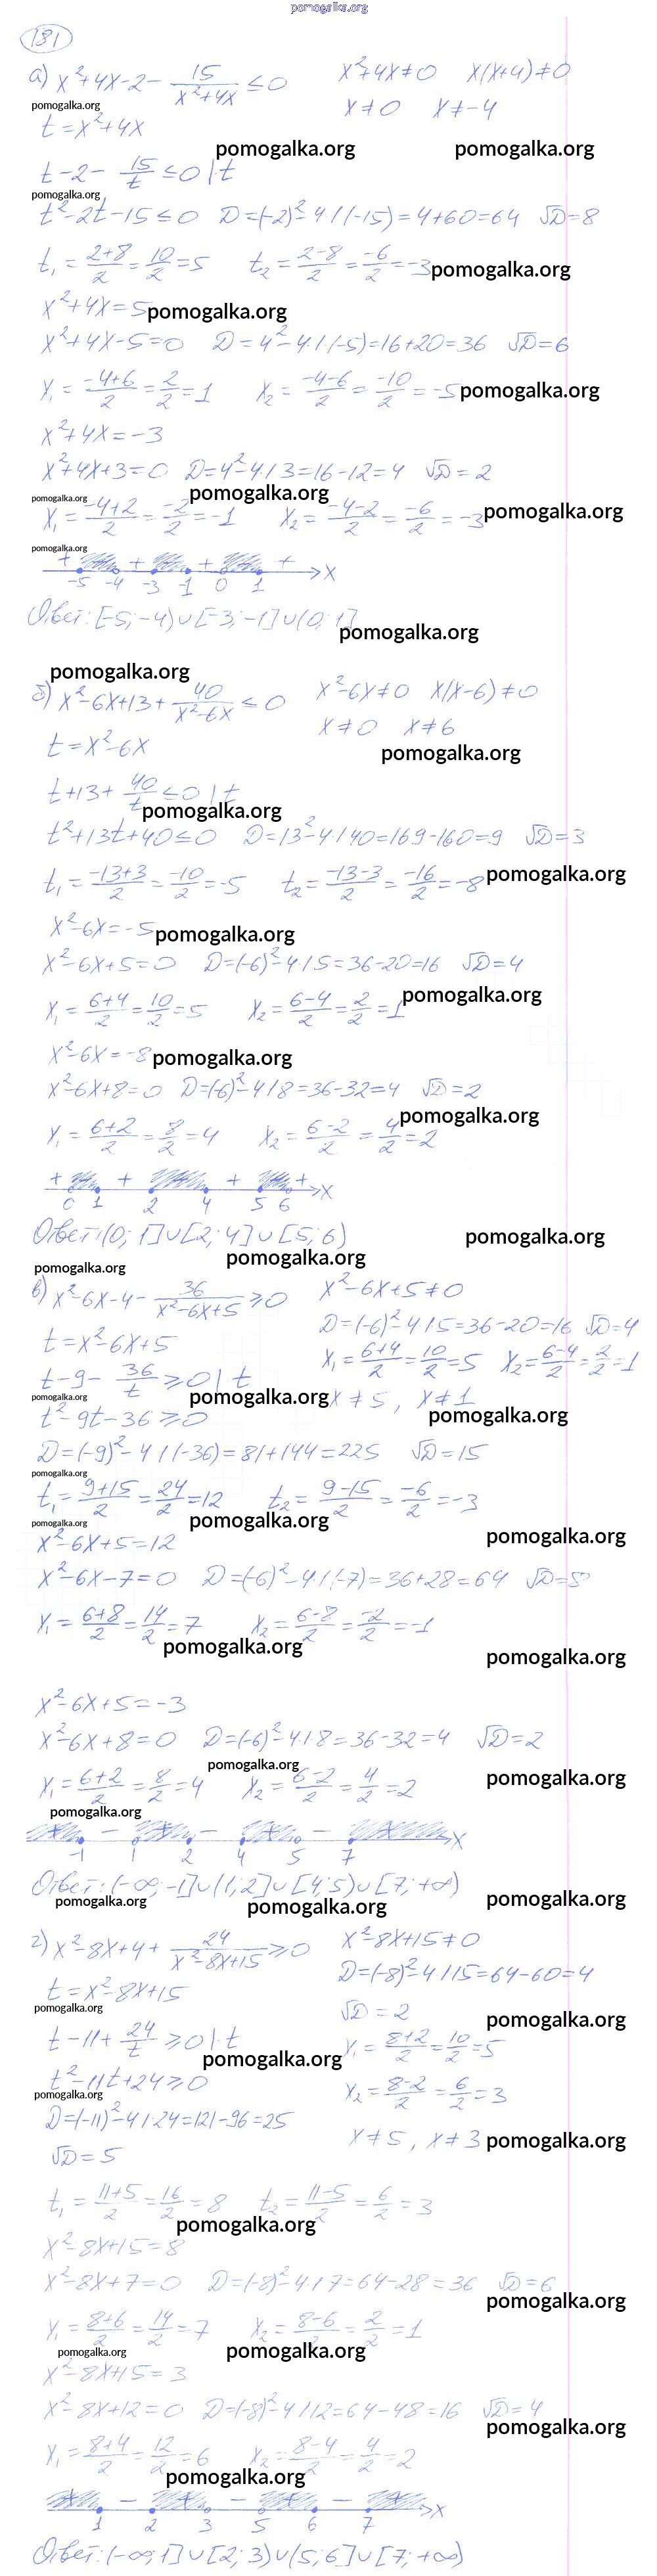 pomogalka.org
181
а) x²+4x-2- 15/(x²+4x) ≤0   x²+4x≠0   x(x+4)≠0
pomogalka.org
t=x²+4x   x≠0   x≠-4
pomogalka.org   pomogalka.org
t-2- 15/t ≤0 |·t
pomogalka.org
t²-2t-15≤0   D=(-2)²-4·1·(-15)=4+60=64   √D=8
t₁= (2+8)/2 = 10/2 =5   t₂= (2-8)/2 = -6/2 =-3 pomogalka.org
x²+4x=5 pomogalka.org
x²+4x-5=0   D=4²-4·1·(-5)=16+20=36   √D=6
x₁= (-4+6)/2 = 2/2 =1   x₂= (-4-6)/2 = -10/2 =-5 pomogalka.org
x²+4x=-3
x²+4x+3=0   D=4²-4·1·3=16-12=4   √D=2
pomogalka.org   pomogalka.org
x₁= (-4+2)/2 = -2/2 =-1   x₂= (-4-2)/2 = -6/2 =-3 pomogalka.org
pomogalka.org
+ + + +
-5 -4 -3 -1 0 1 x
Ответ: [-5;-4)∪[-3;-1]∪(0;1]
pomogalka.org
pomogalka.org
б) x²-6x+13+ 40/(x²-6x) ≤0   x²-6x≠0   x(x-6)≠0
t=x²-6x   x≠0   x≠6
pomogalka.org
t+13+ 40/t ≤0 |·t
pomogalka.org
t²+13t+40≤0   D=13²-4·1·40=169-160=9   √D=3
t₁= (-13+3)/2 = -10/2 =-5   t₂= (-13-3)/2 = -16/2 =-8 pomogalka.org
x²-6x=-5 pomogalka.org
x²-6x+5=0   D=(-6)²-4·1·5=36-20=16   √D=4
x₁= (6+4)/2 = 10/2 =5   x₂= (6-4)/2 = 2/2 =1 pomogalka.org
x²-6x=-8 pomogalka.org
x²-6x+8=0   D=(-6)²-4·1·8=36-32=4   √D=2
x₁= (6+2)/2 = 8/2 =4   x₂= (6-2)/2 = 4/2 =2 pomogalka.org
+ + + +
0 1 2 4 5 6 x
Ответ: (0;1]∪[2;4]∪[5;6)   pomogalka.org
pomogalka.org
pomogalka.org
в) x²-6x-4- 36/(x²-6x+5) ≥0   x²-6x+5≠0
t=x²-6x+5   D=(-6)²-4·1·5=36-20=16   √D=4
t-9- 36/t ≥0 |·t   x₁= (6+4)/2 = 10/2 =5   x₂= (6-4)/2 = 2/2 =1
pomogalka.org   pomogalka.org   x≠5, x≠1
t²-9t-36≥0   pomogalka.org
D=(-9)²-4·1·(-36)=81+144=225   √D=15
pomogalka.org
t₁= (9+15)/2 = 24/2 =12   t₂= (9-15)/2 = -6/2 =-3
pomogalka.org   pomogalka.org   pomogalka.org
x²-6x+5=12
x²-6x-7=0   D=(-6)²-4·1·(-7)=36+28=64   √D=8
x₁= (6+8)/2 = 14/2 =7   x₂= (6-8)/2 = -2/2 =-1
pomogalka.org   pomogalka.org
x²-6x+5=-3
x²-6x+8=0   D=(-6)²-4·1·8=36-32=4   √D=2
pomogalka.org
x₁= (6+2)/2 = 8/2 =4   x₂= (6-2)/2 = 4/2 =2   pomogalka.org
pomogalka.org
+ - + - + - +
-1 1 2 4 5 7 x
Ответ: (-∞;-1]∪(1;2]∪[4;5)∪[7;+∞)
pomogalka.org   pomogalka.org   pomogalka.org
г) x²-8x+4+ 24/(x²-8x+15) ≥0   x²-8x+15≠0
t=x²-8x+15   D=(-8)²-4·1·15=64-60=4
pomogalka.org   √D=2   pomogalka.org
t-11+ 24/t ≥0 |·t   x₁= (8+2)/2 = 10/2 =5
pomogalka.org
t²-11t+24≥0   x₂= (8-2)/2 = 6/2 =3
pomogalka.org
D=(-11)²-4·1·24=121-96=25   x≠5, x≠3 pomogalka.org
√D=5
t₁= (11+5)/2 = 16/2 =8   t₂= (11-5)/2 = 6/2 =3
pomogalka.org
x²-8x+15=8
x²-8x+7=0   D=(-8)²-4·1·7=64-28=36   √D=6
pomogalka.org
x₁= (8+6)/2 = 14/2 =7   x₂= (8-6)/2 = 2/2 =1
pomogalka.org   pomogalka.org
x²-8x+15=3
x²-8x+12=0   D=(-8)²-4·1·12=64-48=16   √D=4
pomogalka.org
x₁= (8+4)/2 = 12/2 =6   x₂= (8-4)/2 = 4/2 =2
pomogalka.org
+ - + - + - +
1 2 3 5 6 7 x
Ответ: (-∞;1]∪[2;3)∪(5;6]∪[7;+∞)